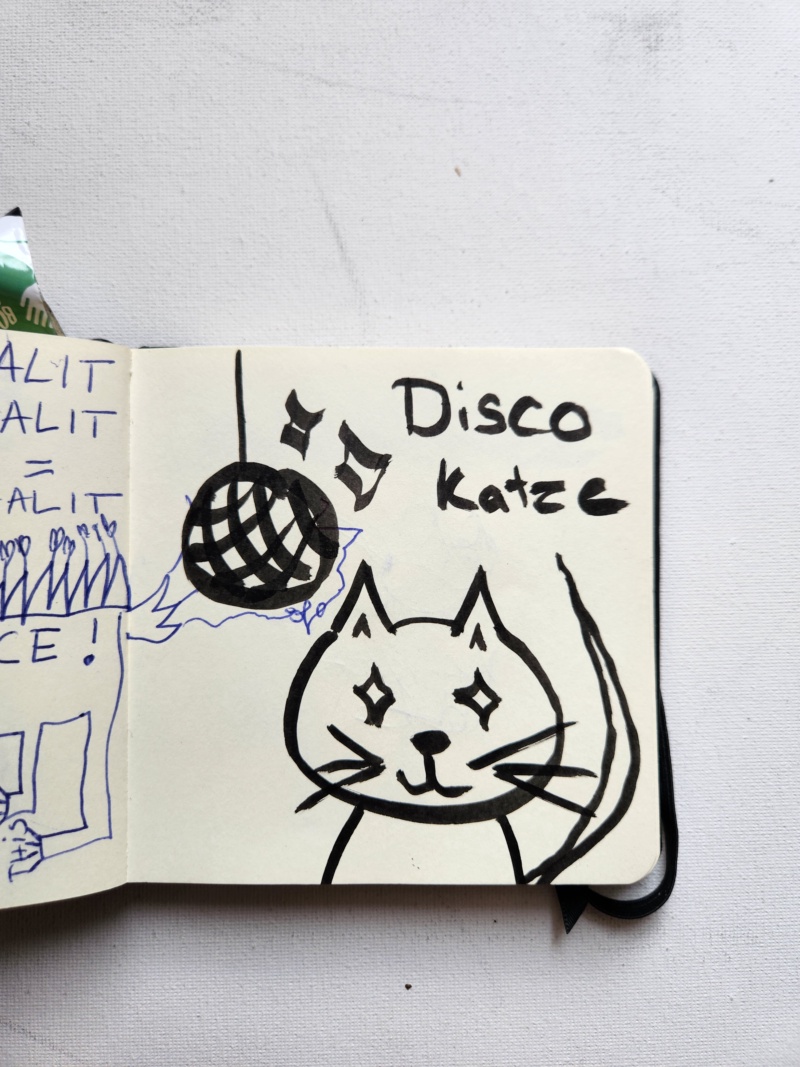 ALIT
ALIT
=
ALIT
CE!
Disco
Katze